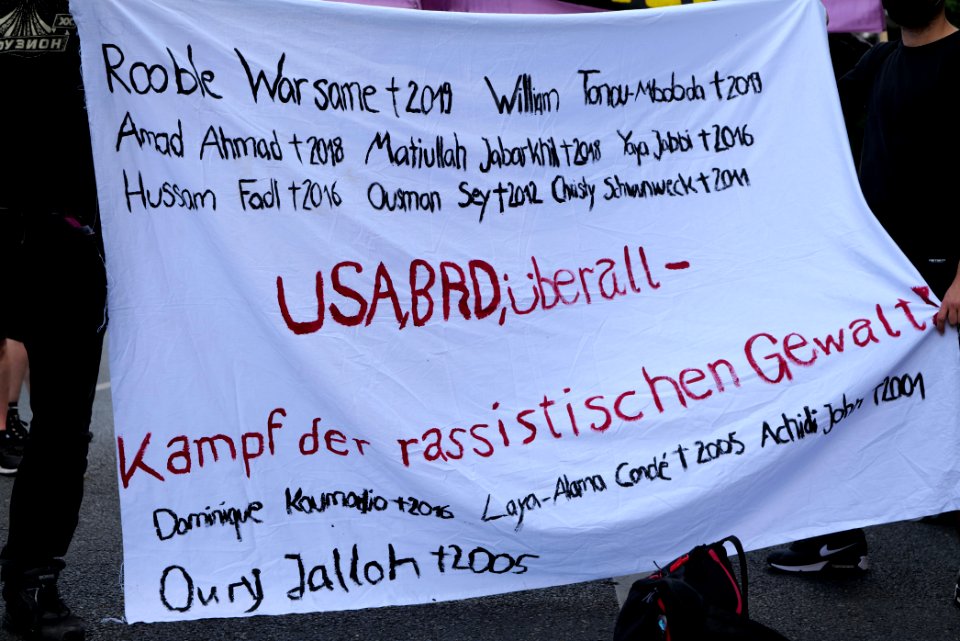 Rooble Warsame †2019 William Tonou-Mbobda †2019
Amad Ahmad †2018 Matiullah Jabarkhil †2018 Yaya Jabbi †2016
Hussam Fadl †2016 Ousman Sey †2012 Christy Schwunweck †2011
USA, BRD, überall –
Kampf der rassistischen Gewalt!
Dominique Koumadio †2016 Laya-Alama Condé †2005 Achidi John †2001
Oury Jalloh †2005